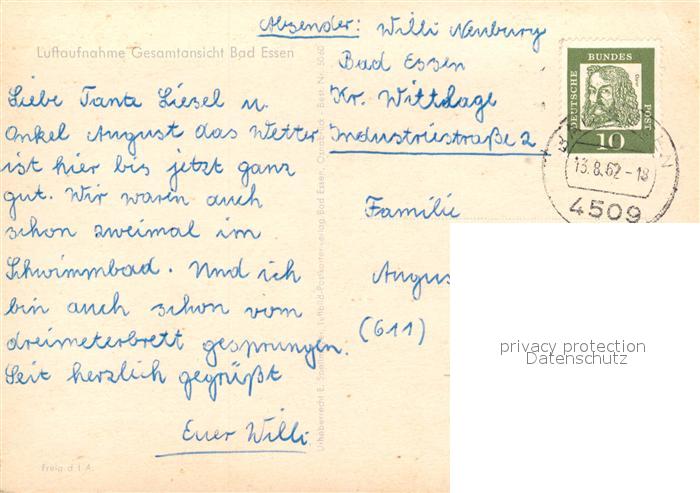 Luftaufnahme Gesamtansicht Bad Essen
Absender: Willi Neuburg
Bad Essen
Kr. Wittlage
Industriestraße 2
Liebe Tante Liesel u.
Onkel August das Wetter
ist hier bis jetzt ganz
gut. Wir waren auch
schon zweimal im
Schwimmbad. Und ich
bin auch schon vom
dreimeterbrett gesprungen.
Seit herzlich gegrüßt
Euer Willi
Freig. d. I. A.
DEUTSCHE BUNDES POST
10
13.8.62-18
4509
Familie
Augus
(611)
privacy protection
Datenschutz